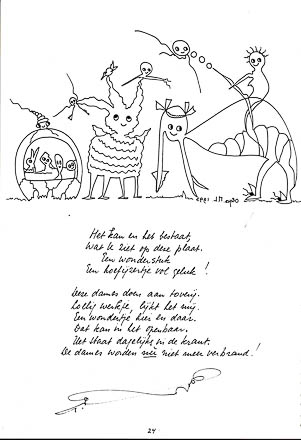 Het kan en het bestaat,
wat je ziet op deze plaat.
Een wonderstuk
Een hoefijzertje vol geluk!
Deze dames doen aan toverij.
Lollig werkje, lijkt het mij.
Een wondertje hier en daar.
Dat kan in het openbaar.
Het staat dagelijks in de krant.
De dames worden nú niet meer verbrand!
24